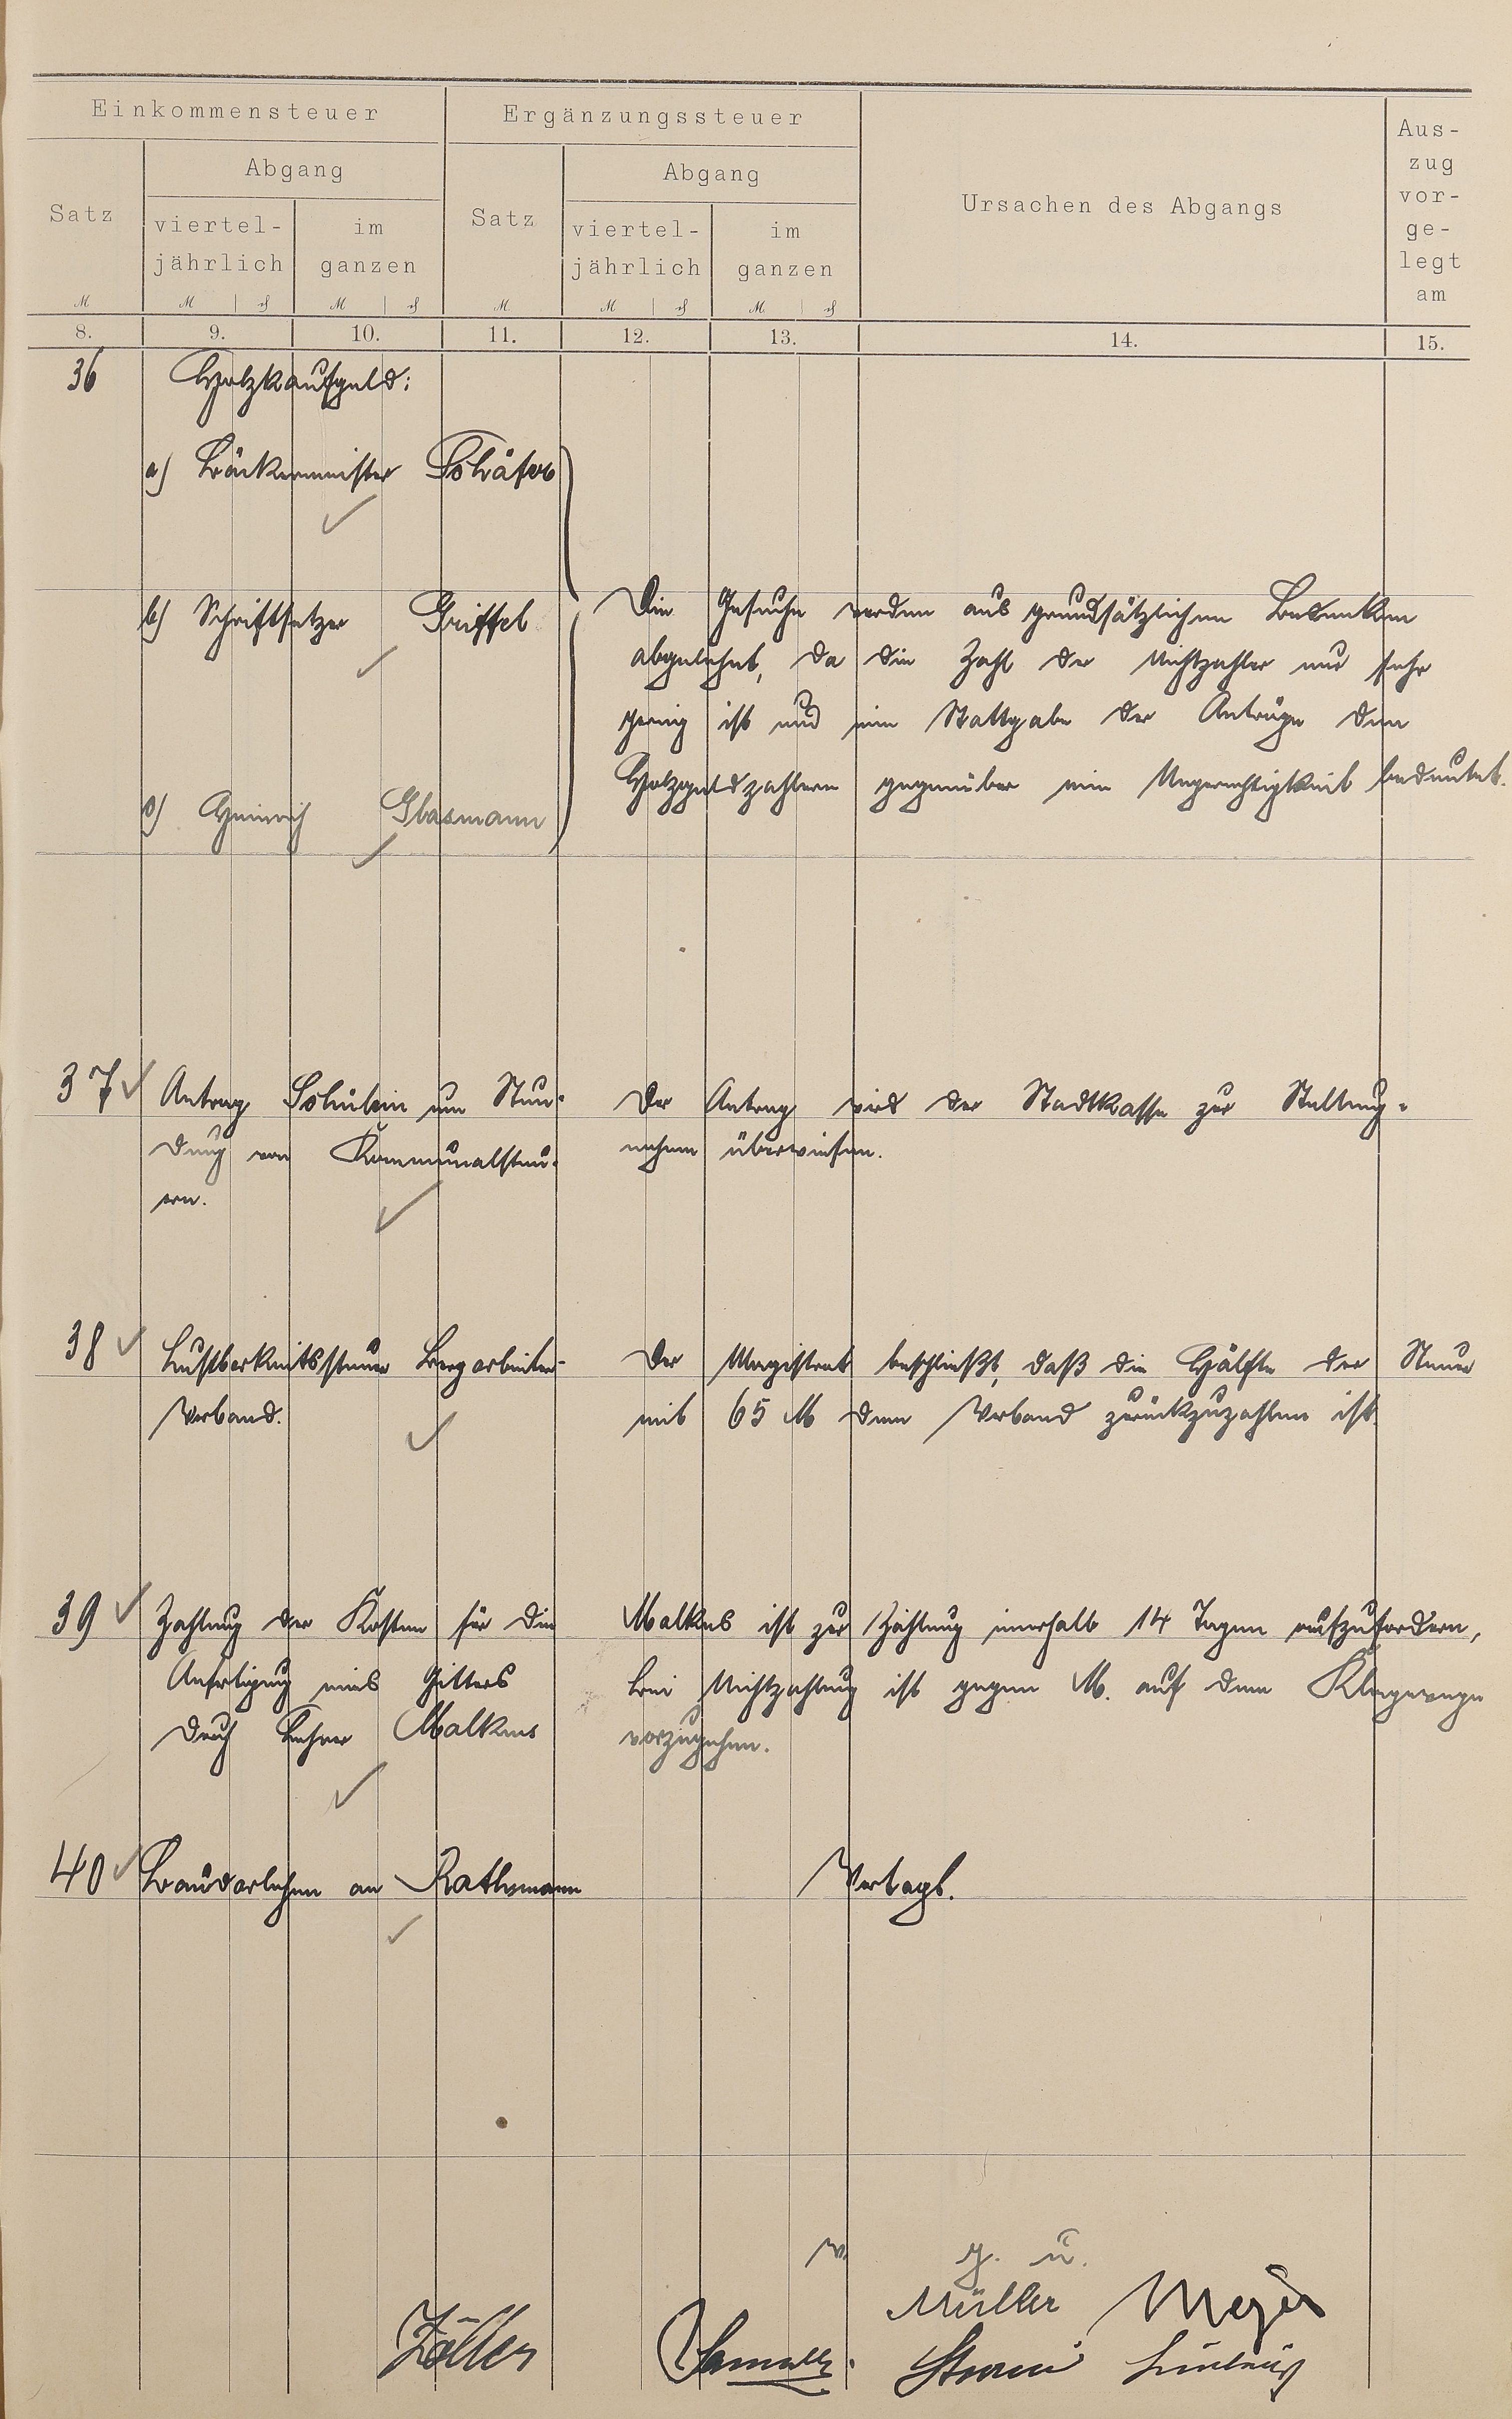 Einkommensteuer
Ergänzungssteuer
Ursachen des Abgangs
Aus-
zug
vor-
ge-
legt
am
Satz
Abgang
viertel-
jährlich
im
ganzen
Satz
Abgang
viertel-
jährlich
im
ganzen
M M ₰ M ₰ M M ₰ M ₰
8. 9. 10. 11. 12. 13. 14. 15.
36 Holzkaufgeld:
a) Bäckermeister Schäfer
b) Schriftsetzer Griffel
c) Heinrich Glasmann
Die Gesuche werden aus grundsätzlichen Bedenken
abgelehnt, da die Zahl der Nichtzahler nur sehr
gering ist und eine Stattgabe der Anträge den
Holzgeldzahlern gegenüber eine Ungerechtigkeit bedeutet.
37 Antrag Schülein um Stun-
dung von Kommunalsteu-
ern.
Der Antrag wird der Stadtkasse zur Stellung-
nahme überwiesen.
38 Lustbarkeitssteuer Bergarbeiter-
Verband.
Der Magistrat beschließt, daß die Hälfte der Steuer
mit 65 M dem Verband zurückzuzahlen ist.
39 Zahlung der Kosten für die
Anfertigung eines Gitters
durch Lehrer Malkus
Malkus ist zur Zahlung innerhalb 14 Tagen aufzufordern,
bei Nichtzahlung ist gegen M. auf dem Klagewege
vorzugehen.
40 Baudarlehen an Rathsmann
Vertagt.
v. g. u.
Müller Meyer
Zöller